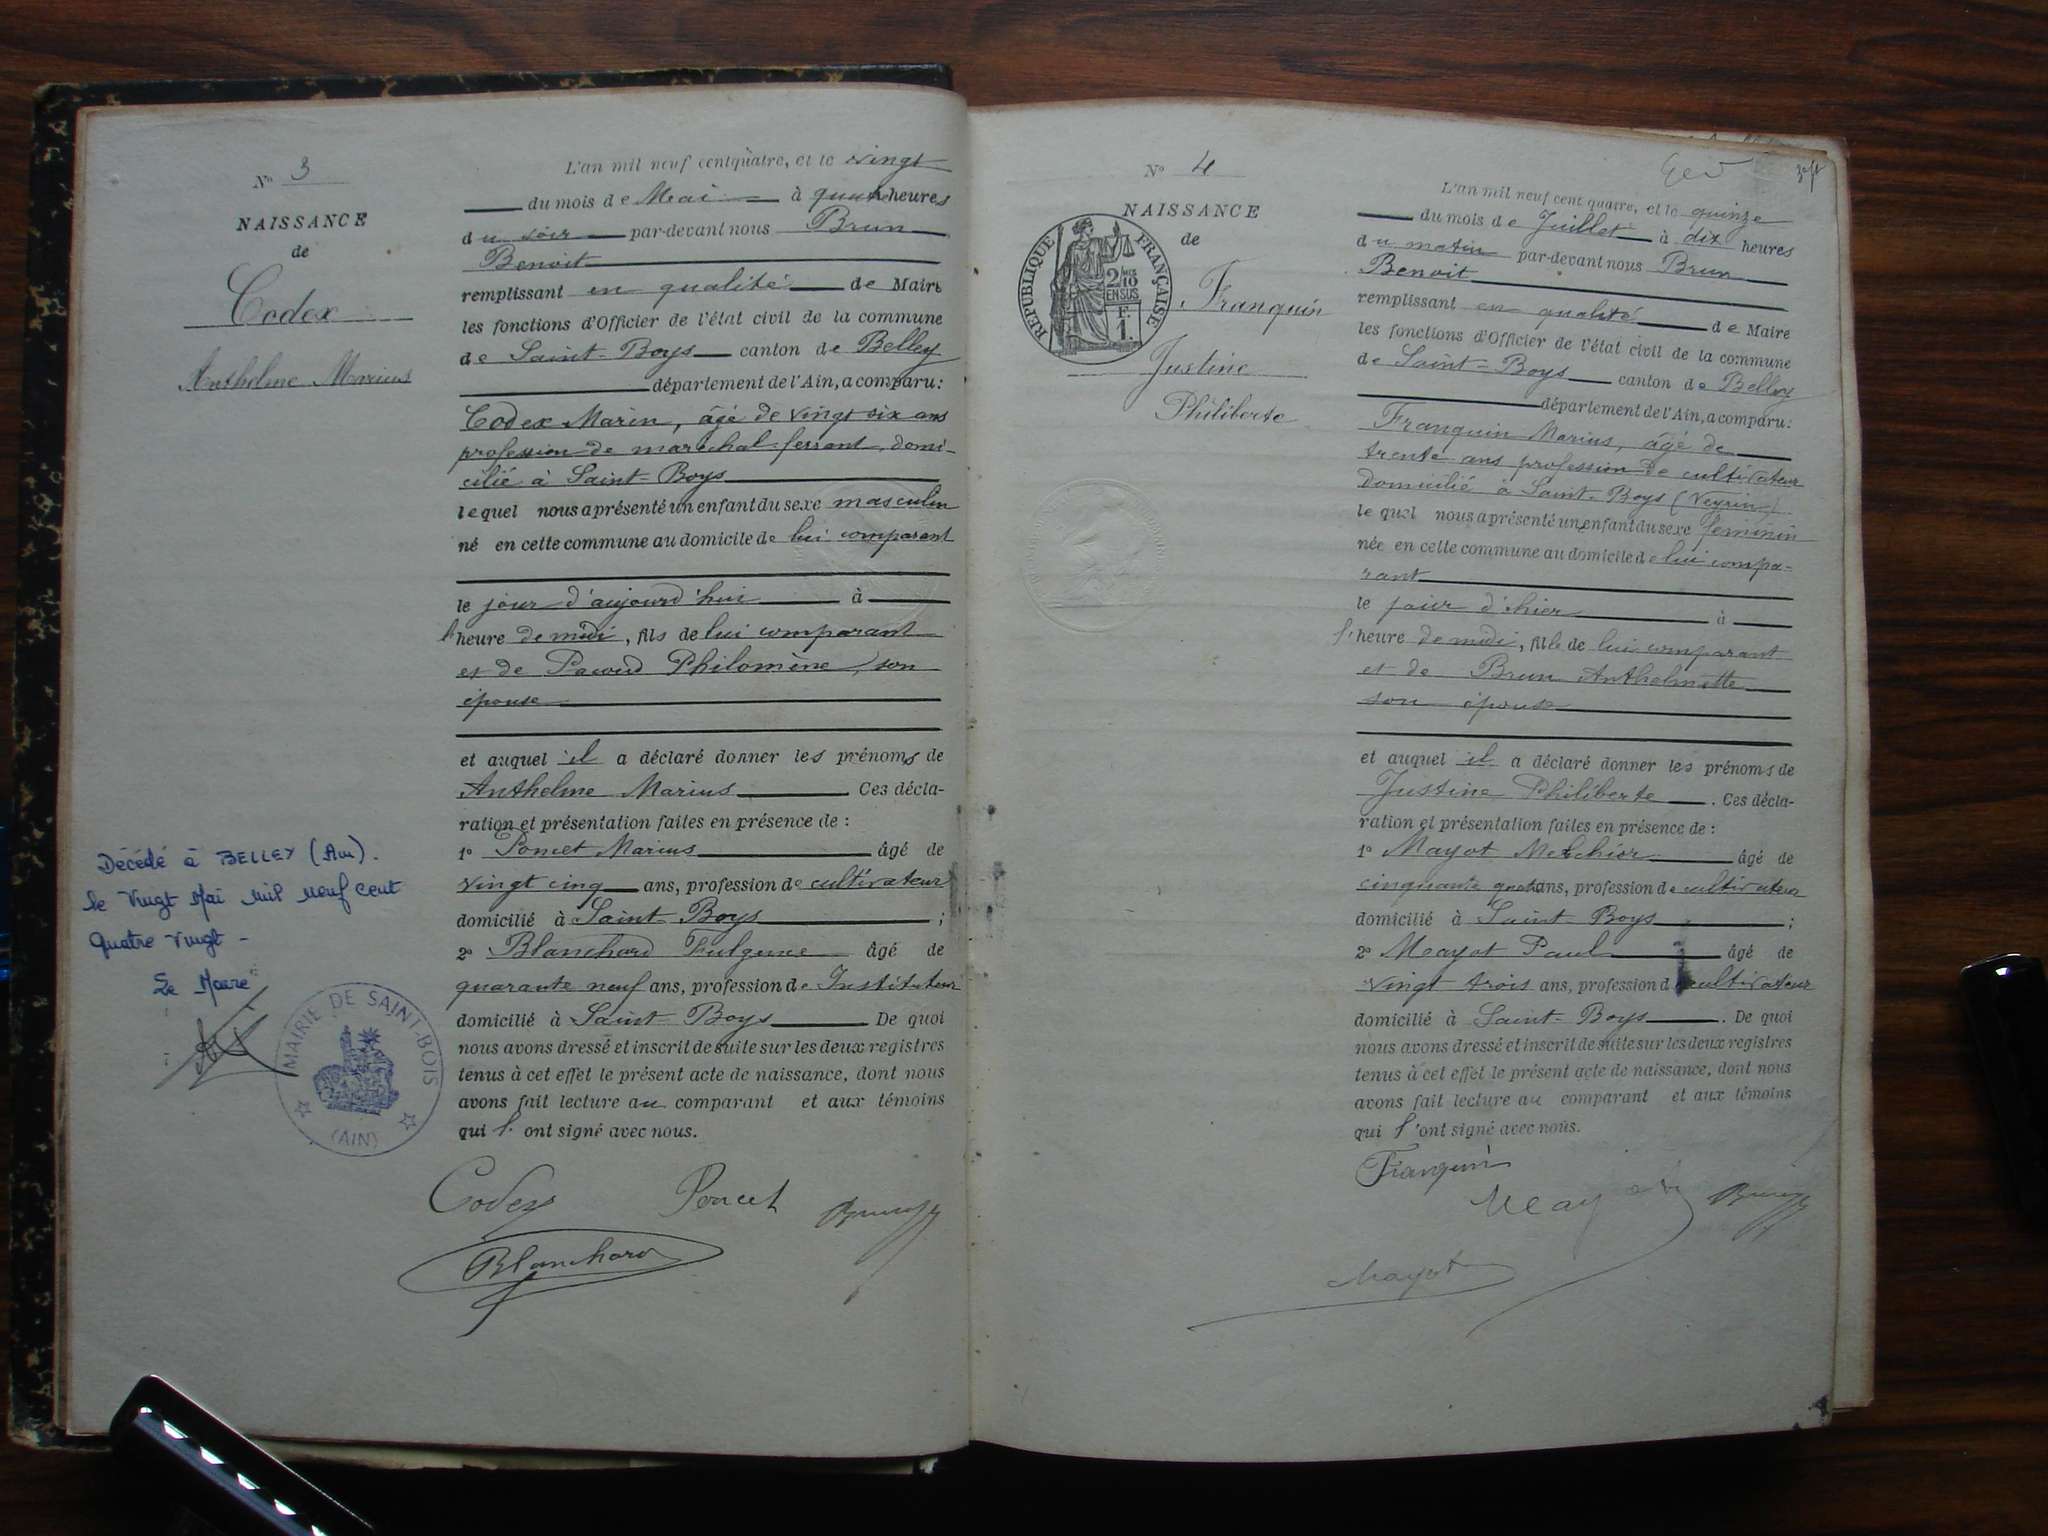 N° 3
NAISSANCE
de
Codex
Anthelme Marius
L'an mil neuf cent quatre, et le vingt
du mois de Mai à quatre heures
du soir par-devant nous Brun
Benoit
remplissant en qualité de Maire
les fonctions d'Officier de l'état civil de la commune
de Saint-Boys canton de Belley
département de l'Ain, a comparu:
Codex Marin, âgé de vingt six ans
profession de maréchal-ferrant, domi-
cilié à Saint-Boys
lequel nous a présenté un enfant du sexe masculin
né en cette commune au domicile de lui comparant
le jour d'aujourd'hui à
l'heure de midi, fils de lui comparant
et de Pacoud Philomène, son
épouse
et auquel il a déclaré donner les prénoms de
Anthelme Marius Ces décla-
ration et présentation faites en présence de :
1° Poncet Marius âgé de
vingt cinq ans, profession de cultivateur
domicilié à Saint-Boys ;
2° Blanchard Fulgence âgé de
quarante neuf ans, profession de Instituteur
domicilié à Saint-Boys De quoi
nous avons dressé et inscrit de suite sur les deux registres
tenus à cet effet le présent acte de naissance, dont nous
avons fait lecture au comparant et aux témoins
qui l'ont signé avec nous.
Codex Poncet Brun
Blanchard
Décédé à BELLEY (Ain).
le Vingt Mai mil neuf cent
quatre vingt -
Le Maire
MAIRIE DE SAINT-BOIS
(AIN)
N° 4
NAISSANCE
de
RÉPUBLIQUE FRANÇAISE
2/10
EN SUS
F.
1.
Franquin
Justine
Philiberte
L'an mil neuf cent quatre, et le quinze
du mois de Juillet à dix heures
du matin par-devant nous Brun
Benoit
remplissant en qualité de Maire
les fonctions d'Officier de l'état civil de la commune
de Saint-Boys canton de Belley
département de l'Ain, a comparu:
Franquin Marius, âgé de
trente ans profession de cultivateur
domicilié à Saint-Boys (Veyrin)
lequel nous a présenté un enfant du sexe féminin
née en cette commune au domicile de lui compa-
rant
le jour d'hier à
l'heure de midi, fille de lui comparant
et de Brun Anthelmette
son épouse
et auquel il a déclaré donner les prénoms de
Justine Philiberte . Ces décla-
ration et présentation faites en présence de :
1° Mayot Melchior âgé de
cinquante quatre ans, profession de cultivateur
domicilié à Saint-Boys ;
2° Mayot Paul âgé de
vingt trois ans, profession de cultivateur
domicilié à Saint-Boys . De quoi
nous avons dressé et inscrit de suite sur les deux registres
tenus à cet effet le présent acte de naissance, dont nous
avons fait lecture au comparant et aux témoins
qui l'ont signé avec nous.
Franquin
Mayot Brun
Mayot